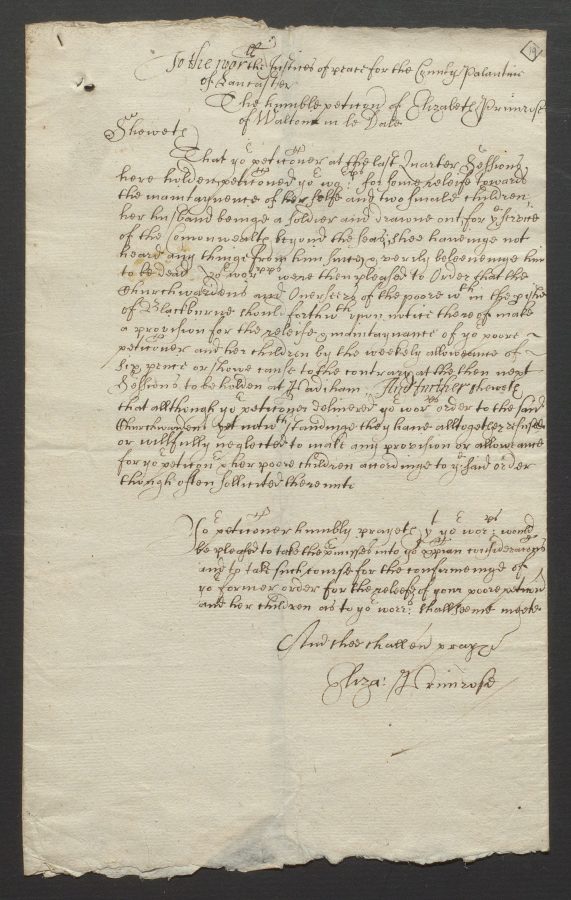 19
To the worll the Justices of peace for the County Palantine
of Lancaster
The humble peticon of Elizabeth Primrose
of Walton in le Dale
Sheweth
That yor peticoner at the last Quarter Sessions
here holden peticoned yor worps for some releife towards
the maintaynence of her selfe and two smale children
her husband beinge a soldier and drawne out for ye service
of the Comonwealth beyond the seas, shee haveinge not
heard any thinge from him since & verily beleeveinge him
to be dead yor worpps were then pleased to Order that the
Churchwardens and Overseers of the poore wthin the pishe
of Blackburne should forthwth upon notice thereof make
a provision for the releife & maintaynance of yor poore
peticoner and her children by the weekely alloweance of
six pence or showe cause to the contrary at the then next
Sessions to be holden at Hadiham And further sheweth
that allthough yor peticoner delivered yor worps order to the said
Churchwardens yet notwthstandinge they have alltogether refused
or willfully neglected to make any provision or alloweance
for yor peticonr & her poore children accordinge to ye said order
though often sollicited thereunto
Yor peticoner humbly prayeth yt yor worps would
be pleased to take the pmisses into yor considerations
and to take such course for the confirmeinge of
yor former order for the releefe of your poore peticonr
and her children as to yor worps shall seeme meete
And shee shall en pray &c
Eliza: Primrose